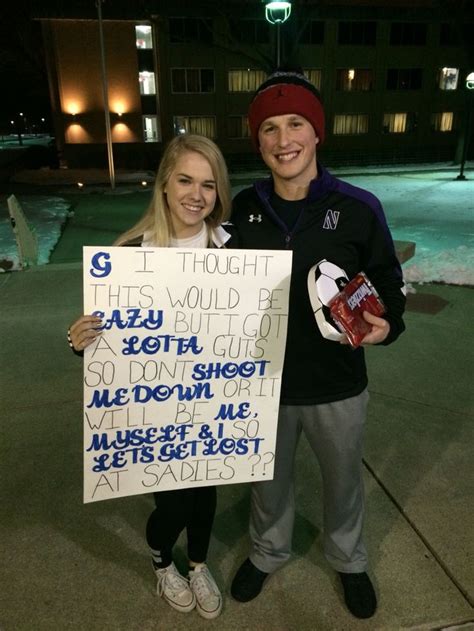 G I THOUGHT
THIS WOULD BE
EAZY BUT I GOT
A LOTTA GUTS
SO DONT SHOOT
ME DOWN OR IT
WILL BE ME,
MYSELF & I SO
LET'S GET LOST
AT SADIES ??
N